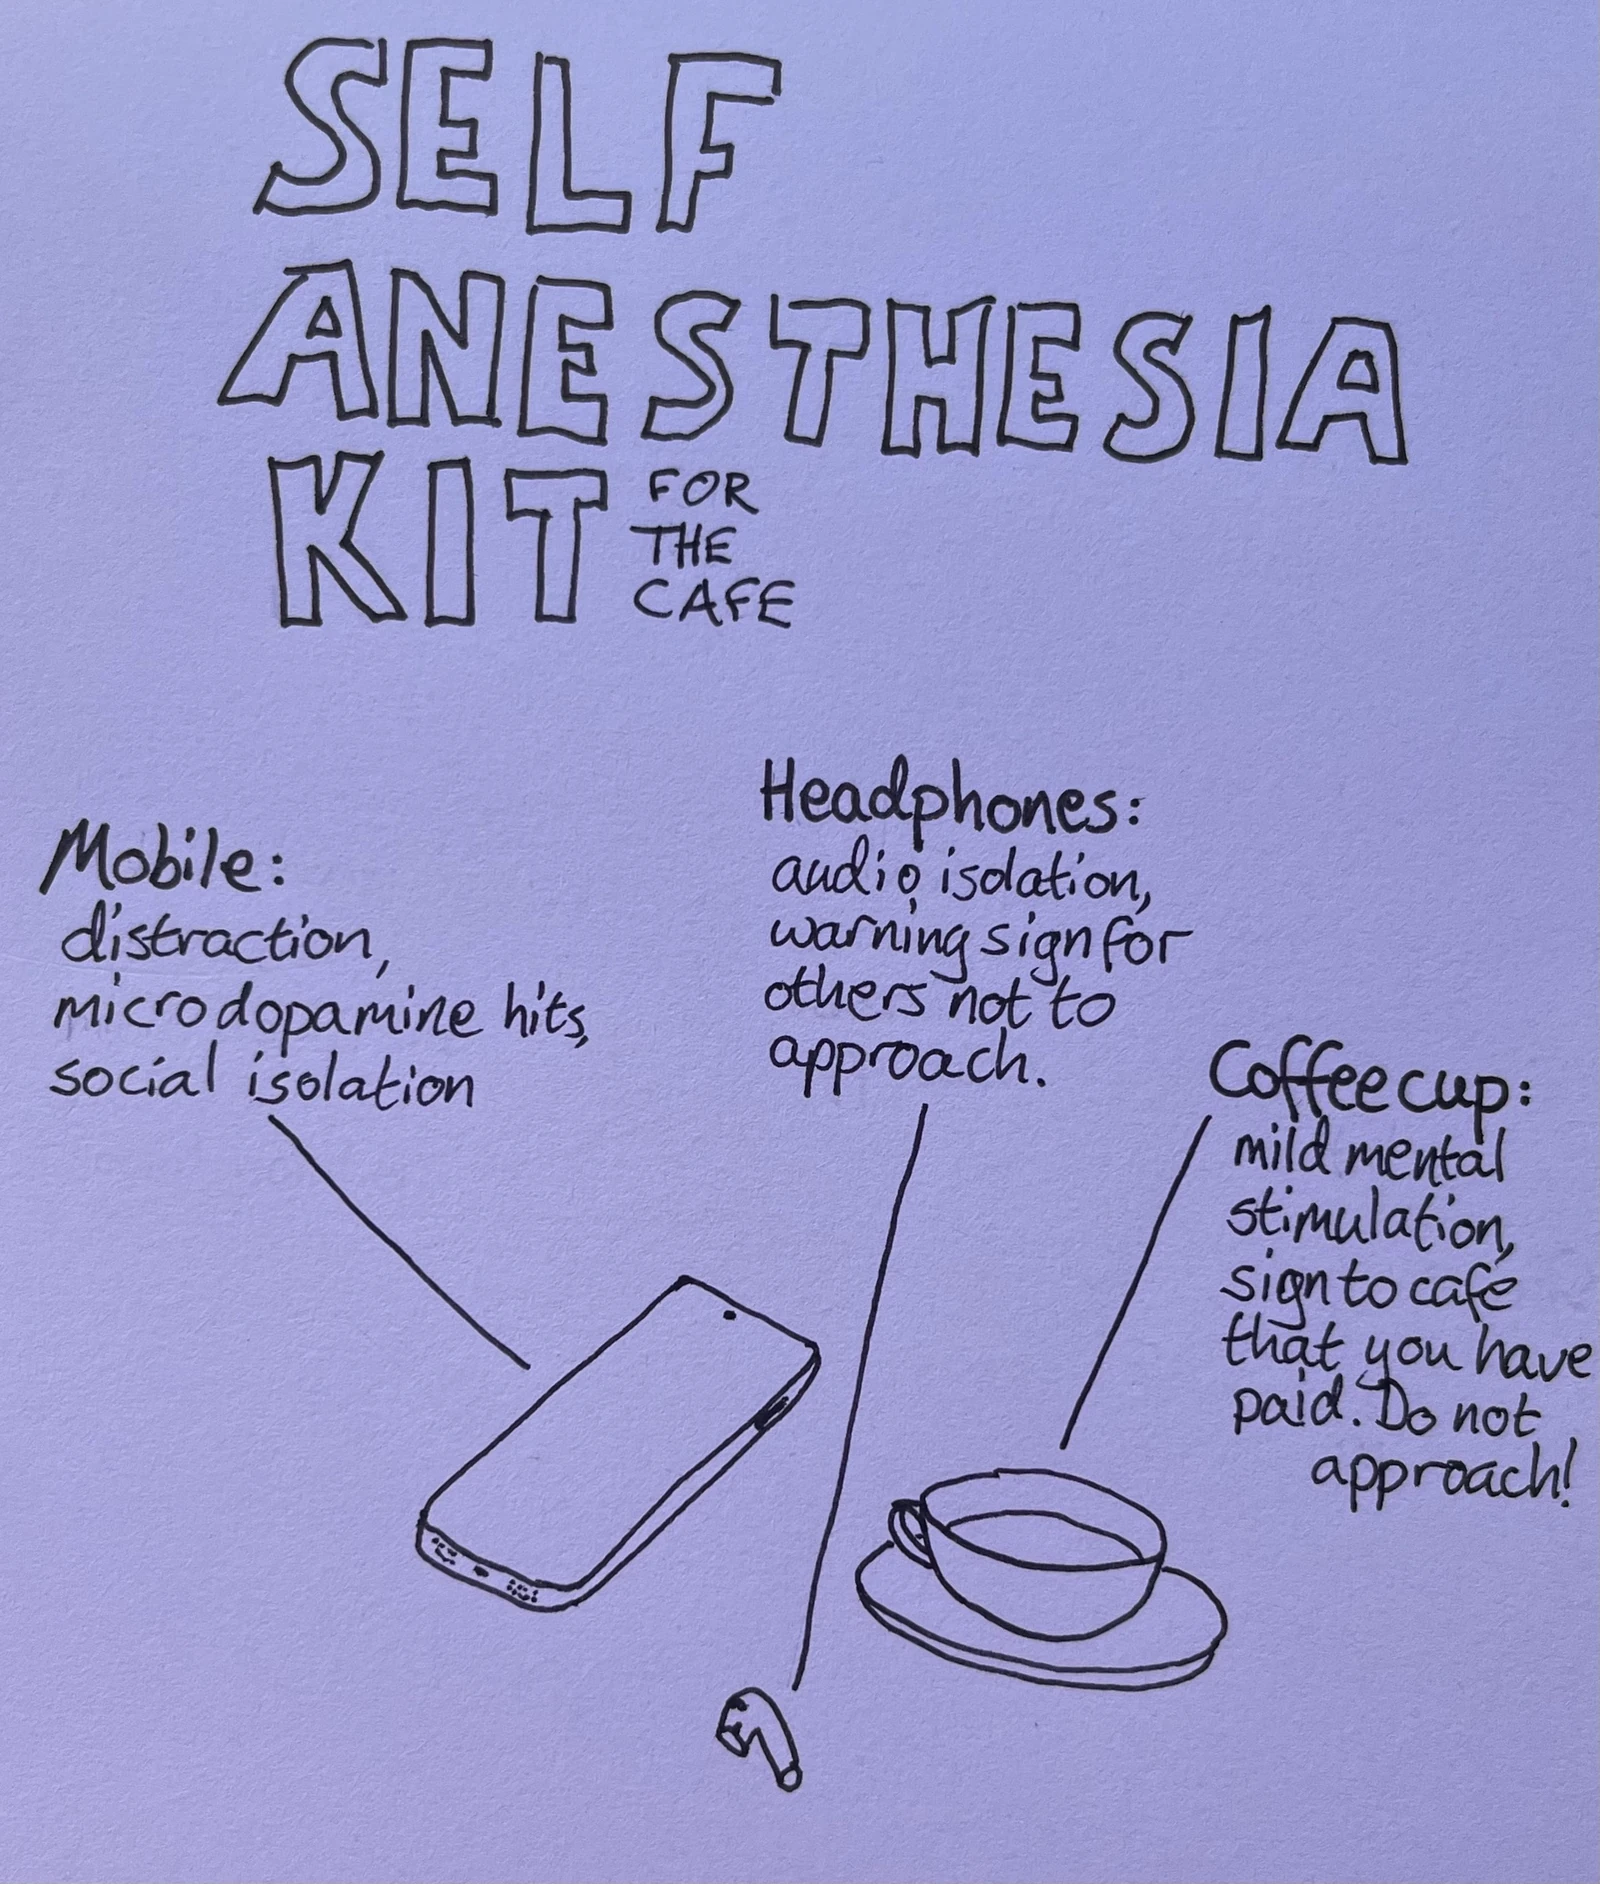 SELF
ANESTHESIA
KIT
FOR
THE
CAFE
Mobile:
distraction,
microdopamine hits,
social isolation
Headphones:
audio isolation,
warning sign for
others not to
approach.
Coffee cup:
mild mental
stimulation,
sign to café
that you have
paid. Do not
approach!